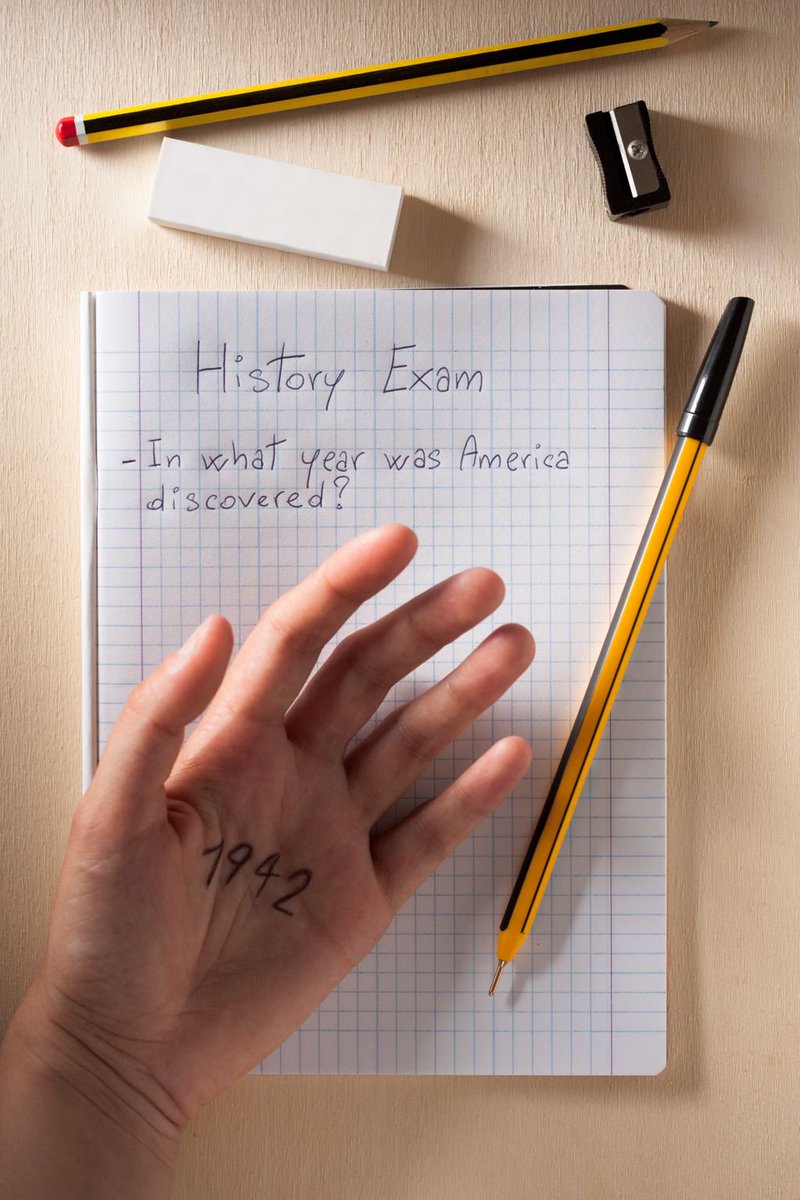 History Exam
-In what year was America
discovered?
1942